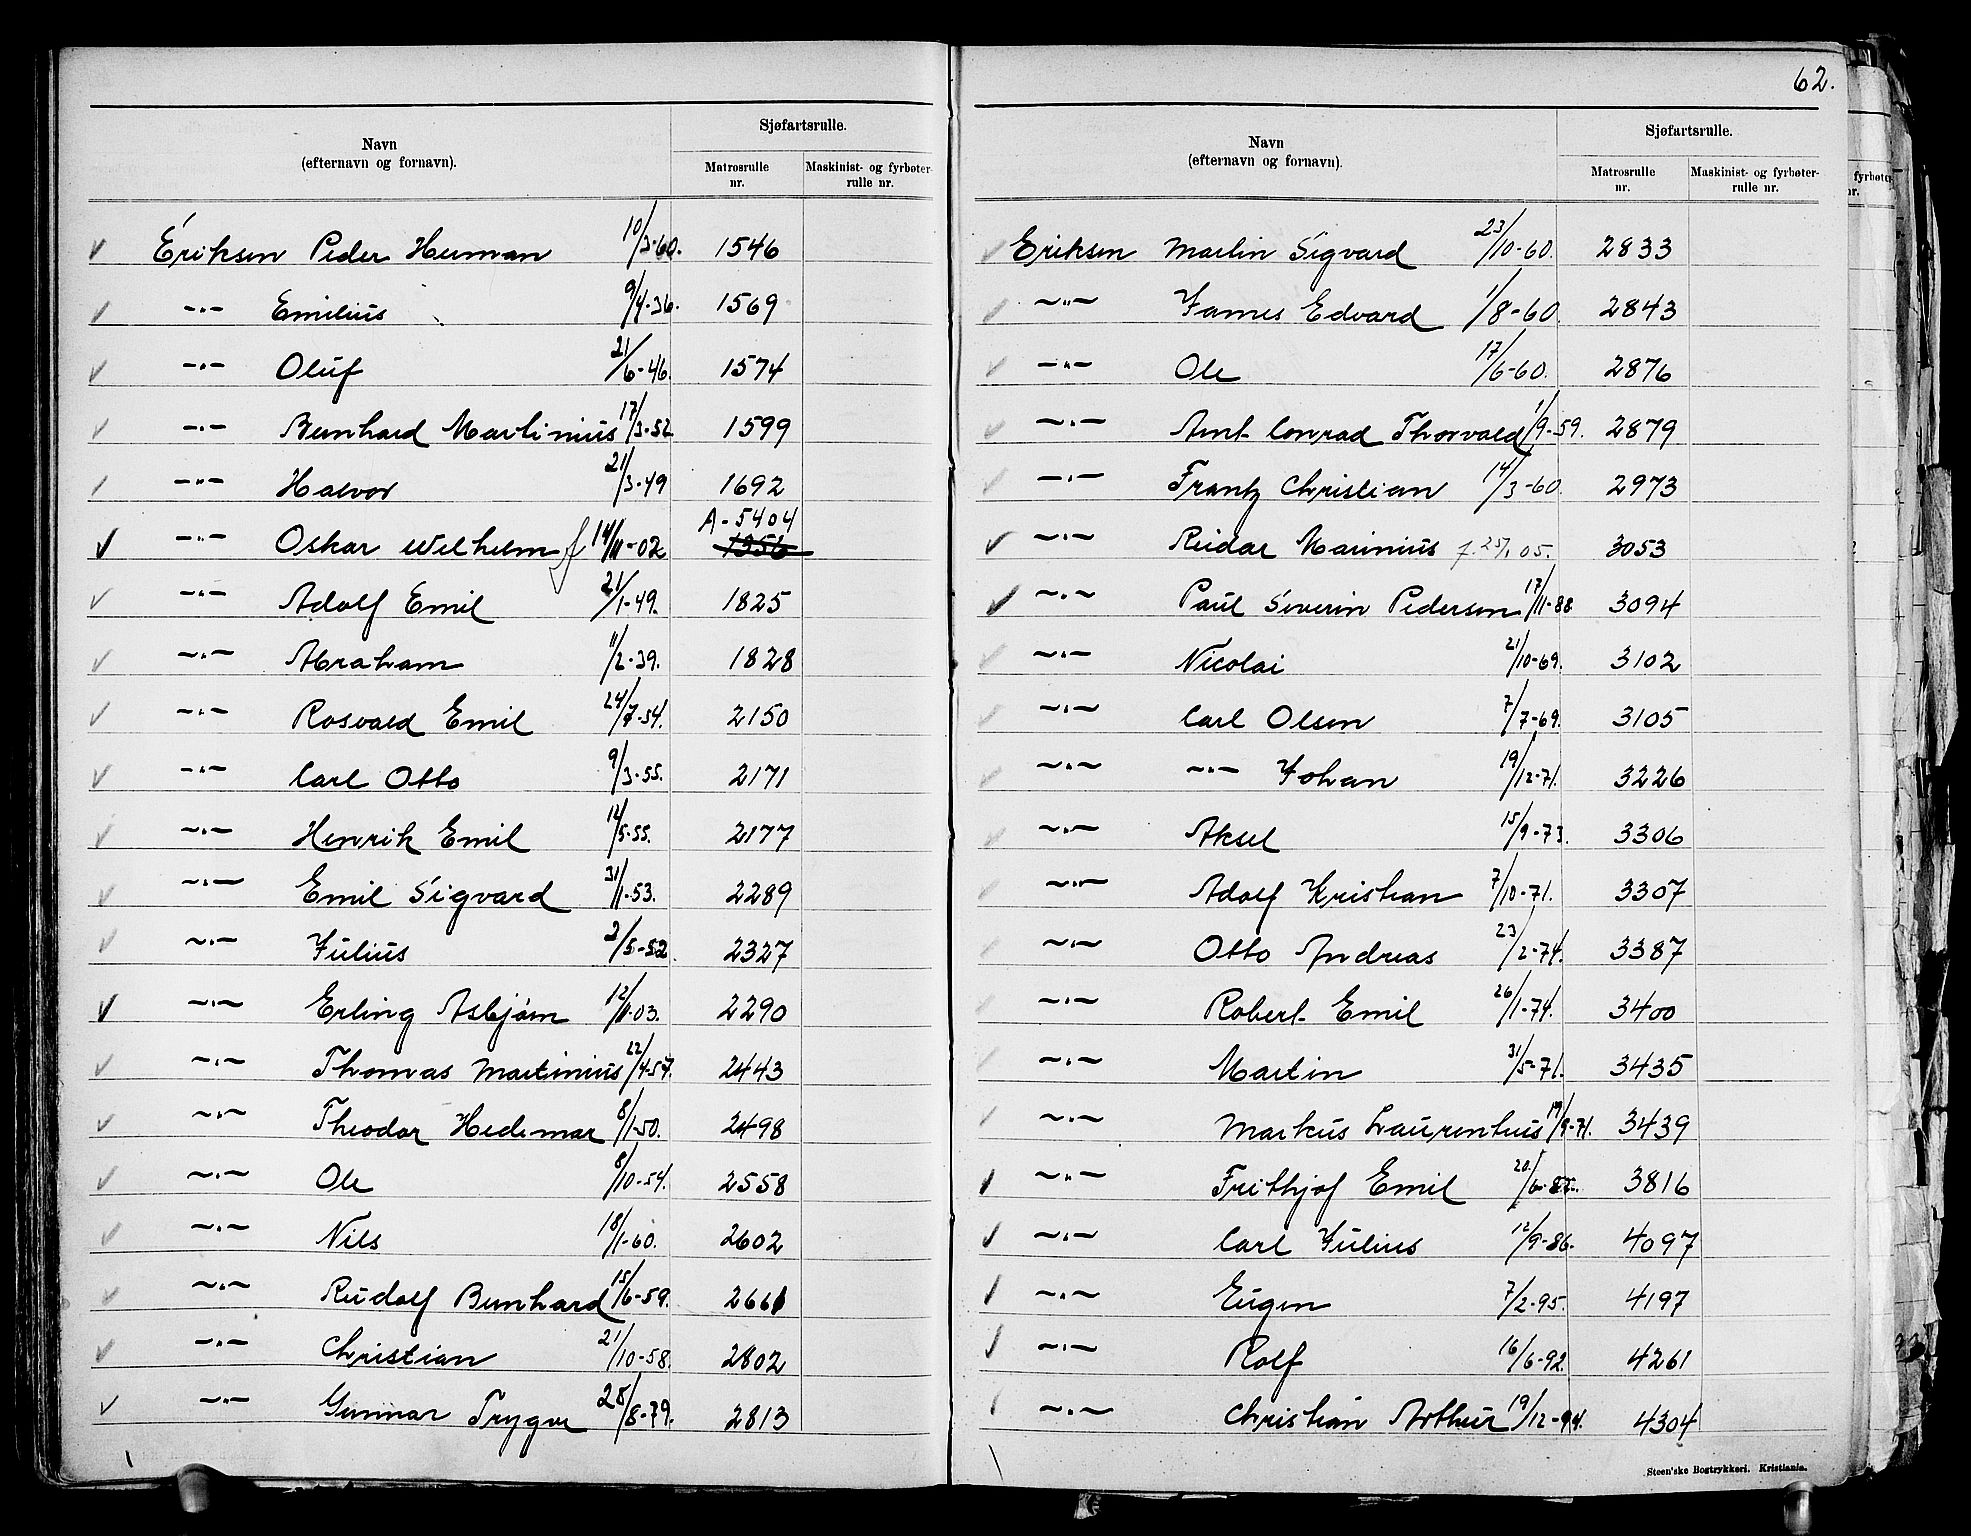 Navn
(efternavn og fornavn).
Sjøfartsrulle.
Matrosrulle nr.
Maskinist- og fyrbøter-rulle nr.
✓ Eriksen Peder Herman 10/3-60. 1546
✓ –"– Emilius 9/4-36. 1569
✓ –"– Oluf 21/6-46. 1574
✓ –"– Bernhard Martinius 17/3-52 1599
✓ –"– Halvor 21/3-49 1692
✓ –"– Oskar Wilhelm f 14/11-02 A-5404 1356
✓ –"– Adolf Emil 21/1-49. 1825
✓ –"– Abraham 11/2-39. 1828
✓ –"– Rosvald Emil 24/7-54. 2150
✓ –"– Carl Otto 9/3-55. 2171
✓ –"– Henrik Emil 12/5-55. 2177
✓ –"– Emil Sigvard 31/1-53. 2289
✓ –"– Julius 2/5-52. 2327
✓ –"– Erling Asbjørn 12/11-03. 2290
✓ –"– Thomas Martinius 22/4-57. 2443
✓ –"– Theodor Hedemar 8/1-50. 2498
✓ –"– Ole 8/10-54. 2558
✓ –"– Nils 18/1-60. 2602
✓ –"– Rudolf Bernhard 15/6-59. 2661
✓ –"– Christian 21/10-58. 2802
✓ –"– Gunnar Trygve 28/8-79. 2813
62.
Navn
(efternavn og fornavn).
Sjøfartsrulle.
Matrosrulle nr.
Maskinist- og fyrbøter-rulle nr.
✓ Eriksen Martin Sigvard 23/10-60. 2833
✓ –"– James Edvard 1/8-60. 2843
✓ –"– Ole 17/6-60. 2876
✓ –"– Arnt Conrad Thorvald 1/9-59. 2879
✓ –"– Frantz Christian 14/3-60. 2973
✓ –"– Reidar Marinius f. 25/1 05. 3053
✓ –"– Paul Severin Pedersen 17/11-88 3094
✓ –"– Nicolai 21/10-69. 3102
✓ –"– Carl Olsen 7/7-69. 3105
✓ –"– –"– Johan 19/12-71. 3226
✓ –"– Aksel 15/9-73. 3306
✓ –"– Adolf Kristian 7/10-71. 3307
✓ –"– Otto Andreas 23/2-74. 3387
✓ –"– Robert Emil 26/1-74. 3400
✓ –"– Martin 31/5-71. 3435
✓ –"– Markus Laurentius 19/9-71. 3439
✓ –"– Frithjof Emil 20/6- 3816
✓ –"– Carl Julius 12/9-86. 4097
✓ –"– Eugen 7/2-95. 4197
✓ –"– Rolf 16/6-92. 4261
✓ –"– Christian Arthur 19/12-94. 4304
Steen'ske Bogtrykkeri. Kristiania.
fyrbøter-
nr.